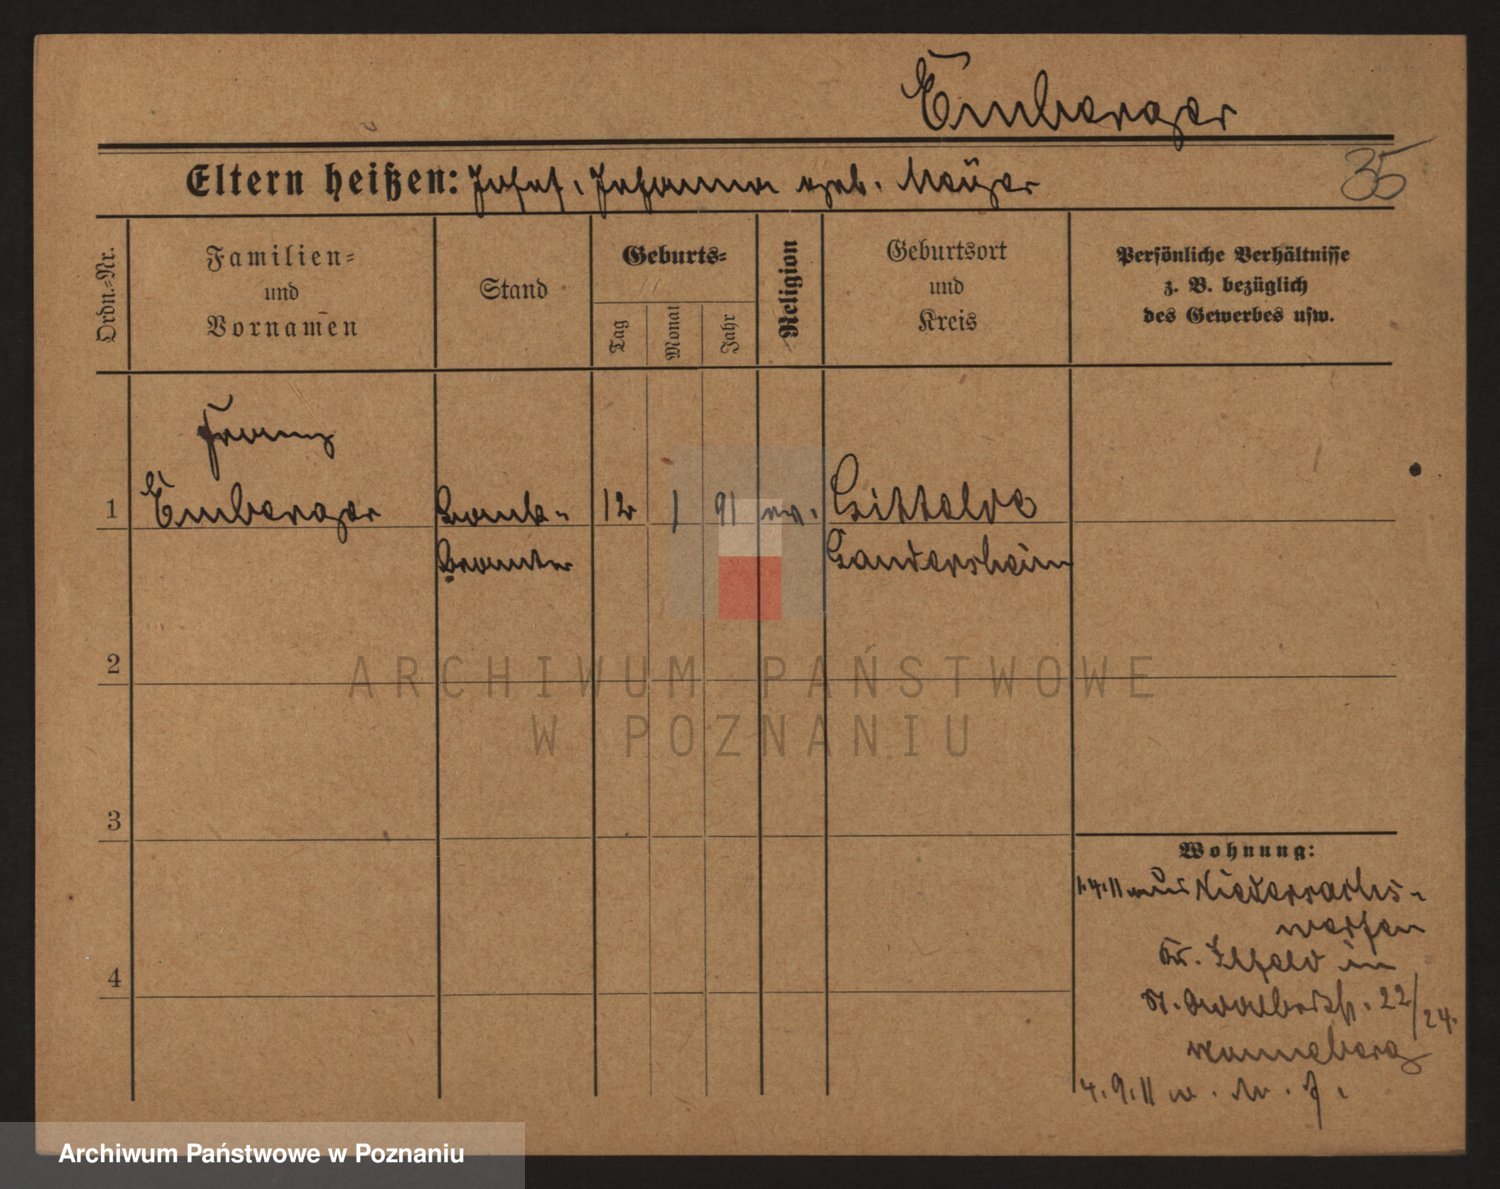 Emberger
Eltern heißen: Josef, Johanna geb. Meÿer
35
Ordn.-Nr.
Familien-
und
Vornamen
Stand
Geburts-
Tag
Monat
Jahr
Religion
Geburtsort
und
Kreis
Persönliche Verhältnisse
z. B. bezüglich
des Gewerbes usw.
Franz
1 Emberger Bank- 12 1 91 ev. Gittelde
beamter Gandersheim
2
3
4
Wohnung:
1.4.11 aus Niedersachs-
werfen
Kr. Ilfeld in
22/24.
Ranneberg
4.9.11 n.
ARCHIWUM PAŃSTWOWE
W POZNANIU
Archiwum Państwowe w Poznaniu